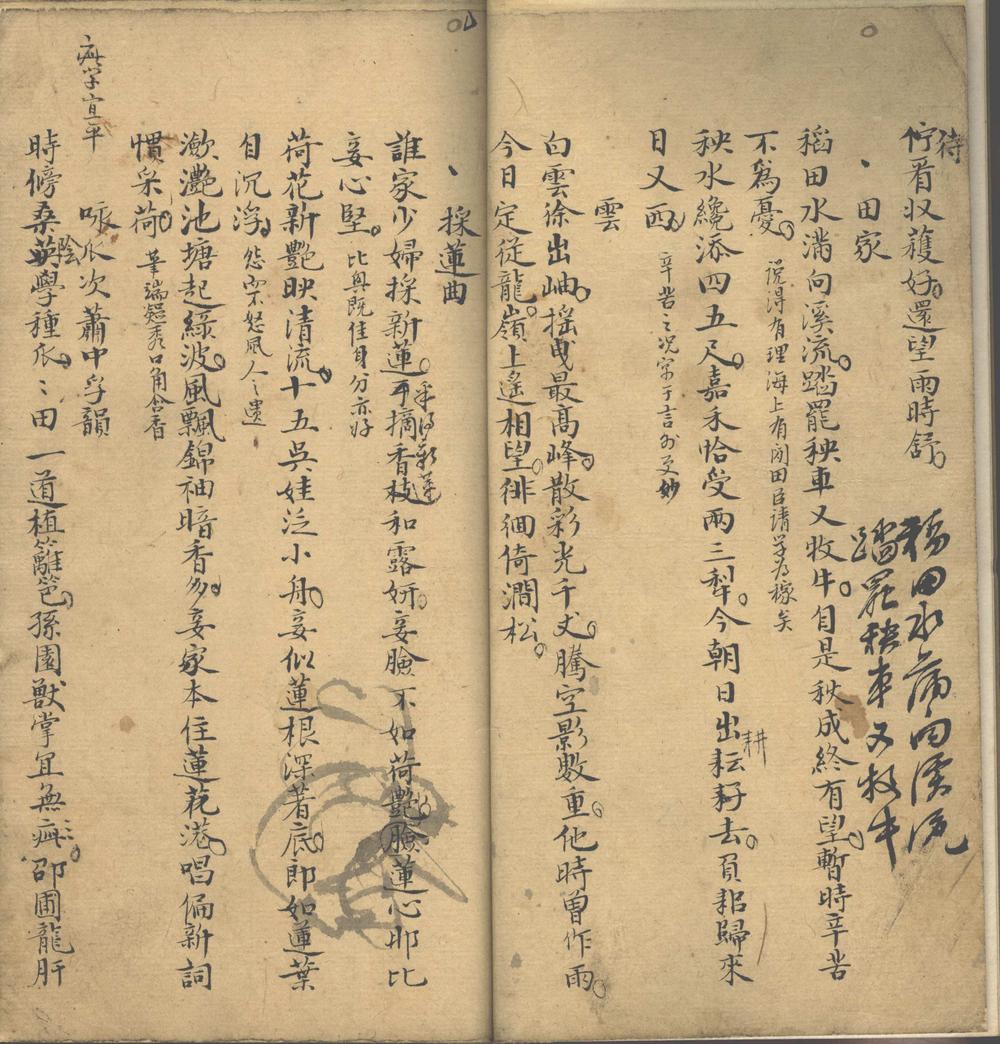 佇看收穫好還望雨時舒
待
稻田水滿向溪流
踏罷秧車又牧牛
田家
稻田水滿向溪流踏罷秧車又牧牛自是秋成終有望暫時辛苦
不為憂 說得有理海上有閒田臣請學為稼矣
秧水纔添四五尺嘉禾恰受兩三犁今朝日出耘耔去負耜歸來
耕
日又西 辛苦之况寓于言外更妙
雲
白雲徐出岫搖曳最高峰散彩光千丈騰空影數重他時曾作雨
今日定從龍嶺上遙相望徘徊倚澗松
採蓮曲
誰家少婦採新蓮平摘香枝和露妍妾臉不如荷艷臉蓮心耶比
妾心堅 比興既佳身分亦好
荷花新艷映清流十五吳娃泛小舟妾似蓮根深著底郎如蓮葉
自沉浮 怨而不怒風人之遺
瀲灧池塘起綠波風飄錦袖暗香多妾家本住蓮花港唱徧新詞
慣采荷 筆端凝秀口角含香
咏瓜次蕭中孚韻
疵字宜平
時傍桑英學種瓜〻田一道植籬笆孫園獸掌宜無疵邵圃龍肝
陰